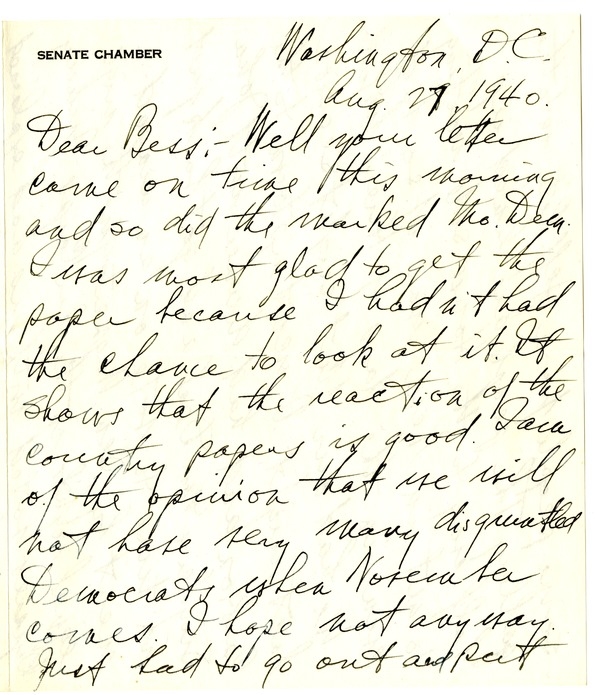 SENATE CHAMBER
Washington, D.C.
Aug. 29, 1940.
Dear Bess:- Well your letter
came on time this morning
and so did the marked Mo. Dem.
I was most glad to get the
paper because I hadn't had
the chance to look at it. It
shows that the reaction of the
country papers is good. I am
of the opinion that we will
not have very many disgruntled
Democrats when November
comes. I hope not anyway.
Just had to go out and